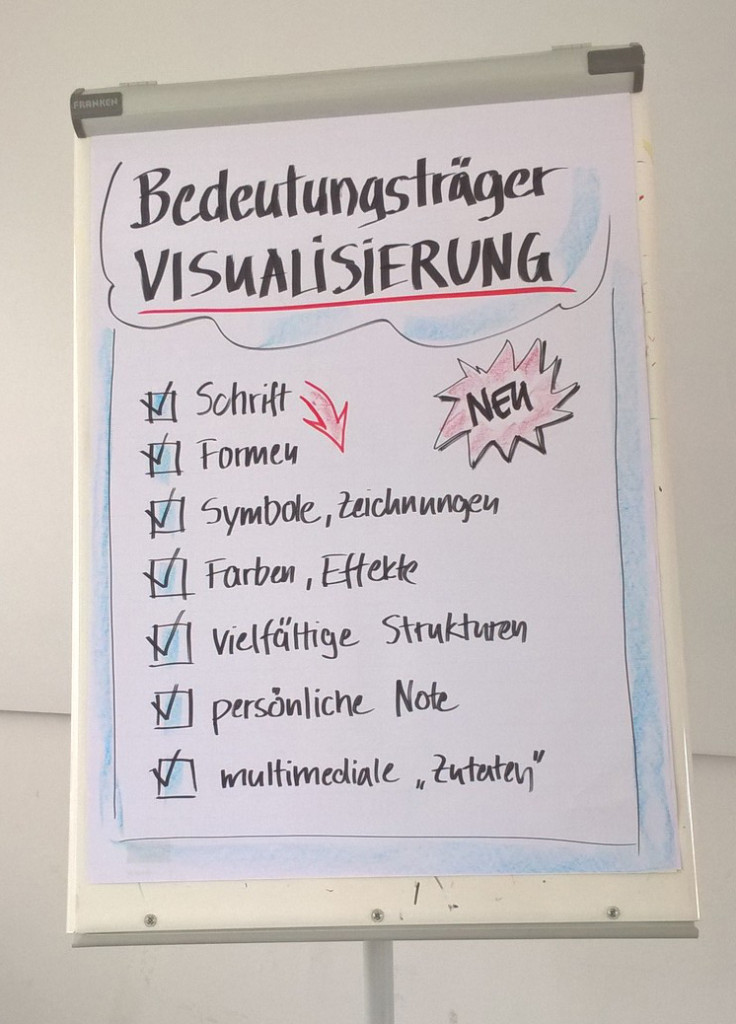 FRANKEN
Bedeutungsträger
VISUALISIERUNG
Schrift
NEU
Formen
Symbole, Zeichnungen
Farben, Effekte
vielfältige Strukturen
persönliche Note
multimediale „Zutaten"